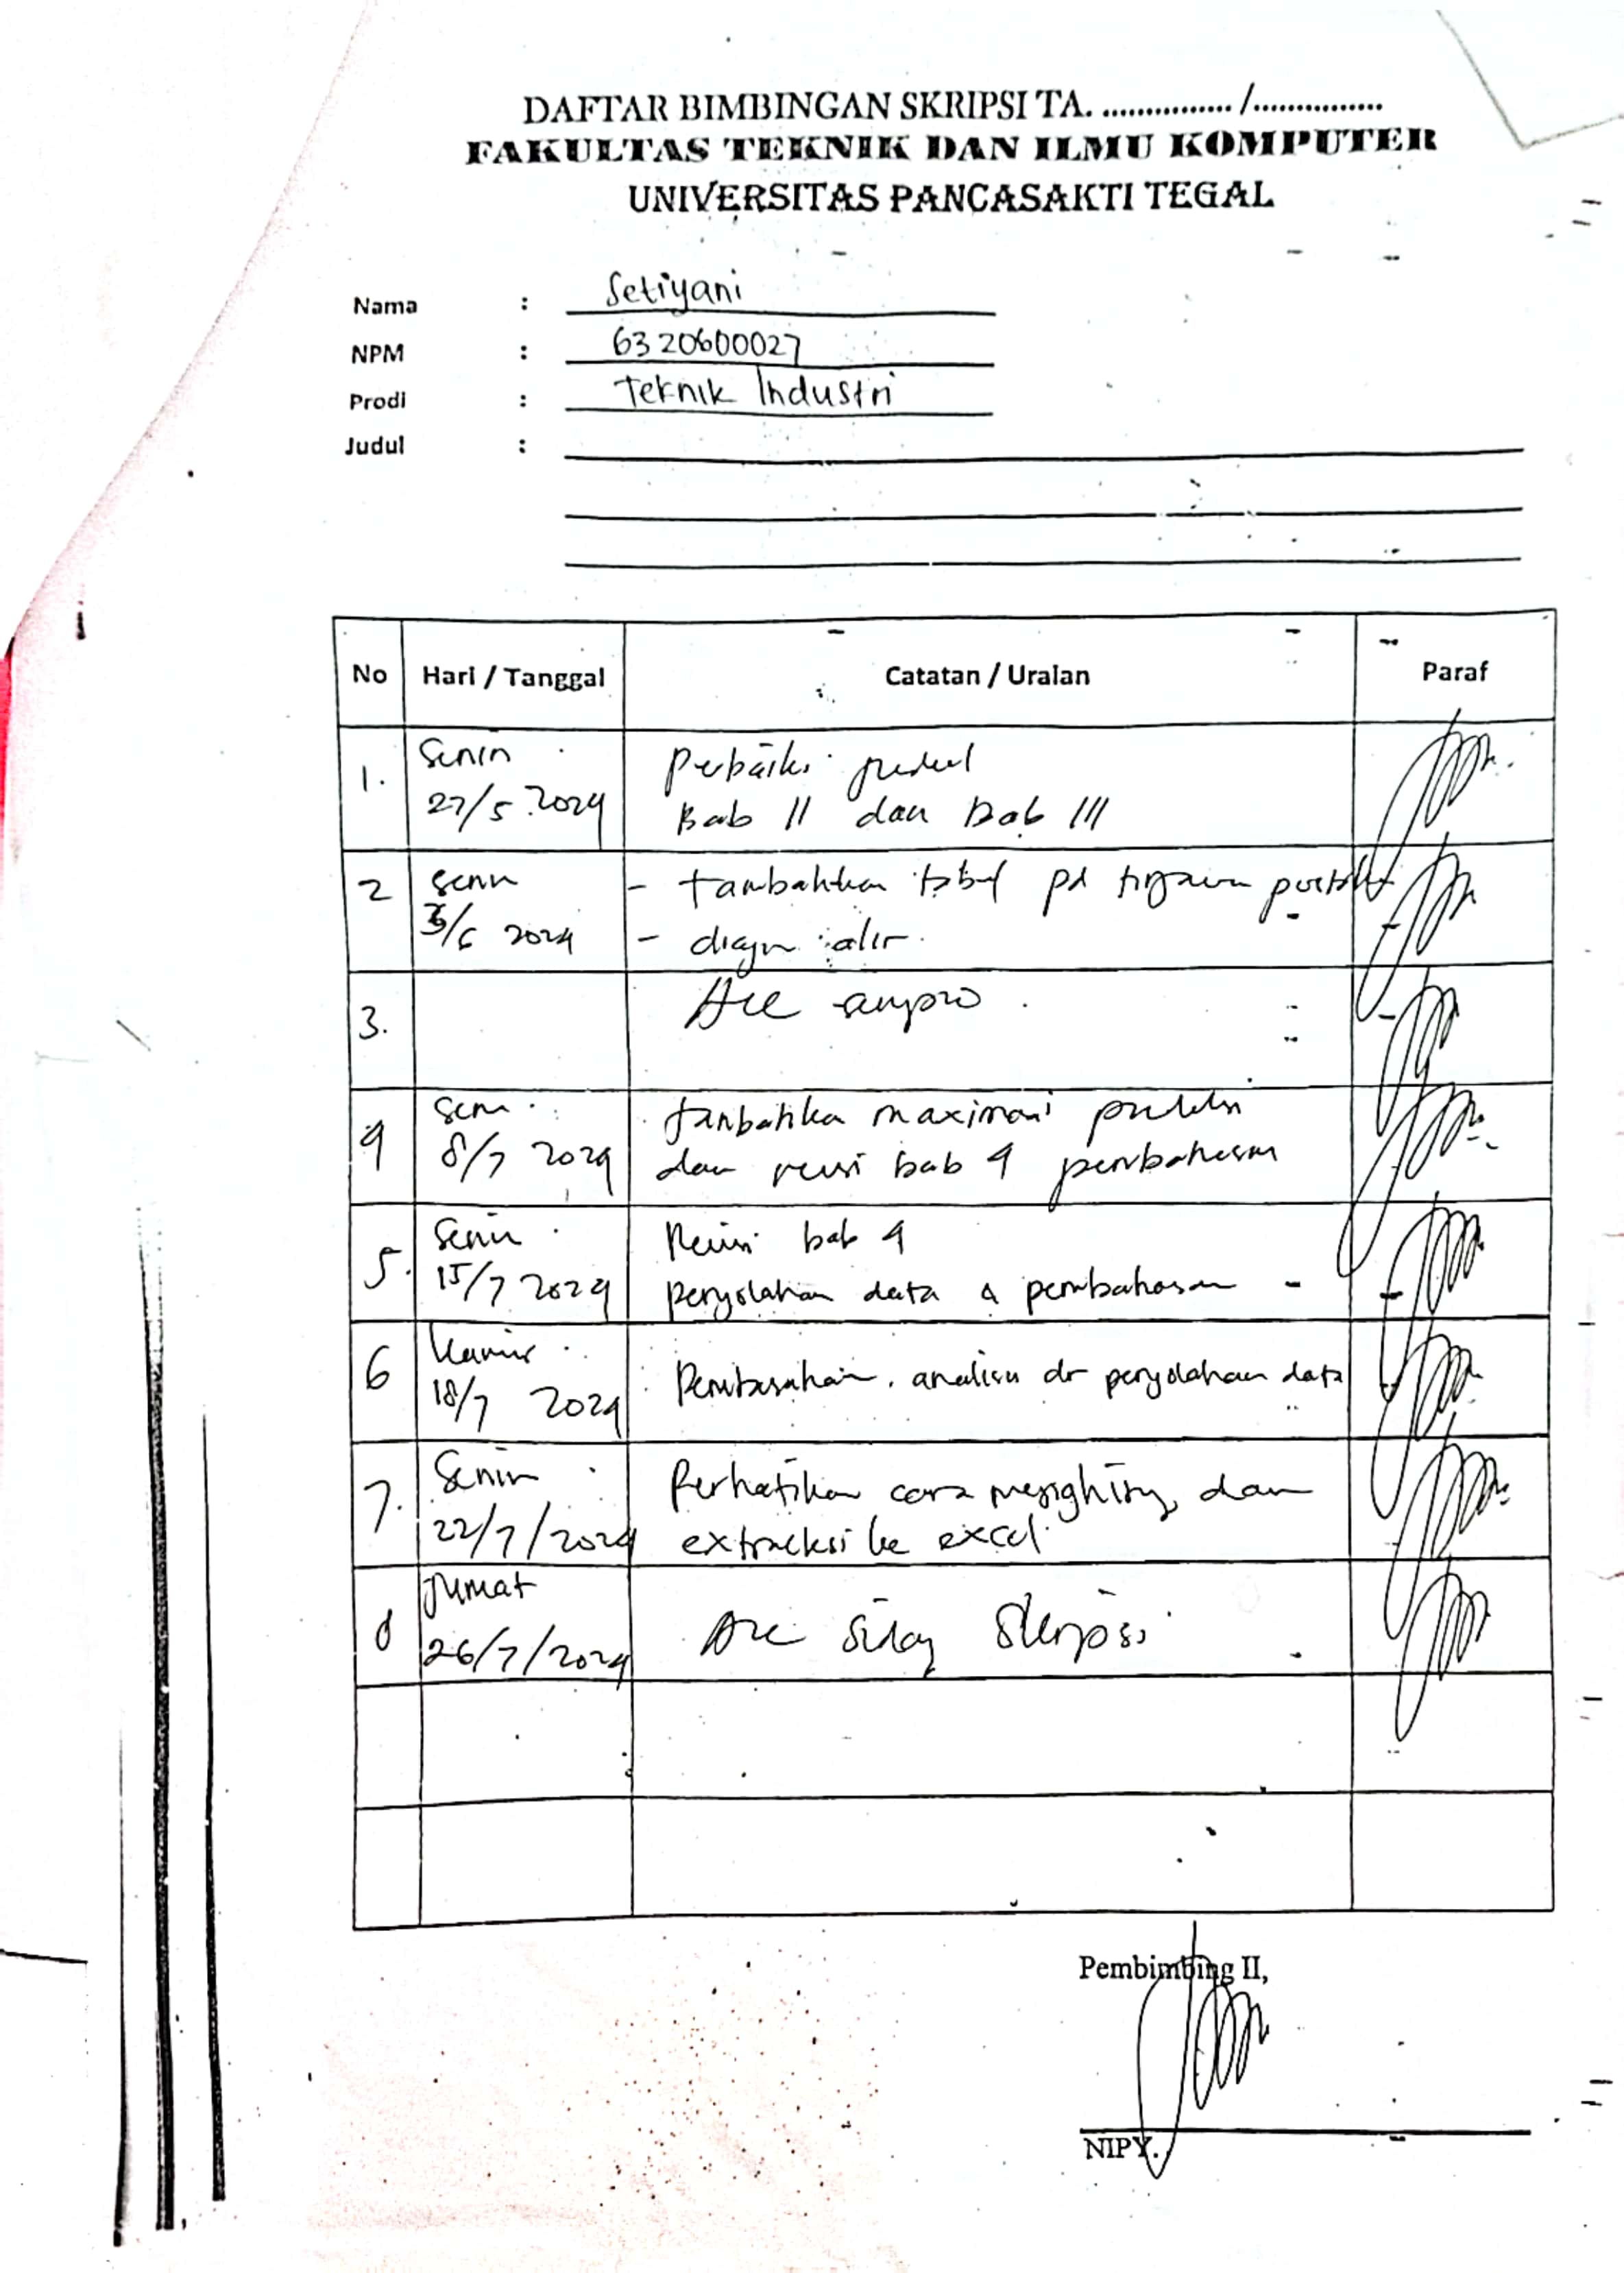 DAFTAR BIMBINGAN SKRIPSI TA. ............... /...............
FAKULTAS TEKNIK DAN ILMU KOMPUTER
UNIVERSITAS PANCASAKTI TEGAL
Nama : Setiyani
NPM : 6320600027
Prodi : Teknik Industri
Judul :
No Hari / Tanggal Catatan / Uraian Paraf
1. Senin
27/5 2024
Perbaiki judul
Bab II dan Bab III
2 Senin
3/6 2024
- tambahkan tabel pd
- alir
3. Acc sempro
4 Senin
8/7 2024
tambahkan
dan revisi bab 4 pembahasan
5. Senin
15/7 2024
Revisi bab 4
pengolahan data & pembahasan
6 Kamis
18/7 2024
Pembahasan. analisa dr pengolahan data
7. Senin
22/7/2024
Perhatikan cara menghitung dan
extraksi ke excel
8 Jumat
26/7/2024
Acc sidang skripsi
Pembimbing II,
NIPY.